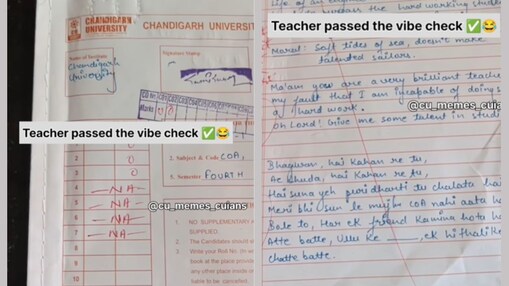 CHANDIGARH
UNIVERSITY
CHANDIGARH UNIVERSIT
Chandigarh
University
Marks
Teacher passed the vibe check ✅😂
0
0
2. Subject & Code COA,
3. Semester FOURTH
4 NA
5 NA
6 NA
7 NA
8
9
10
@cu_memes_cuians
1. NO SUPPLEMENTARY
SUPPLIED.
2. The Candidates should
3. Write your Roll No. (in
book at the place provided
any other place inside
liable to be cancelled.
Life of an
the hard working
Teacher passed the vibe check ✅😂
Moral: Soft tides of sea, doesn't make
talented sailors.
Ma'am you are a very brilliant teache
my fault that I am incapable of doing
@cu_memes_cuians
a hard work.
Oh Lord! Give me some talent in stud
Bhagwan, hai Kahan re tu,
Ae Khuda, hai Kahan re tu,
Hai suna yeh puri dharti tu chalata ha
Meri bhi sun le mujhe COA nahi aata h
Bole to, Har ek friend Kamina hota h
Atte batte, Ullu ke ___, ek hi thali ke
chatte batte.